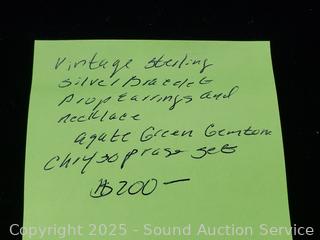 Vintage Sterling
Silver Bracelet
Drop Earrings and
necklace
agate Green Gemstone
Chrysoprase sets
$200-
Copyright 2025 - Sound Auction Service